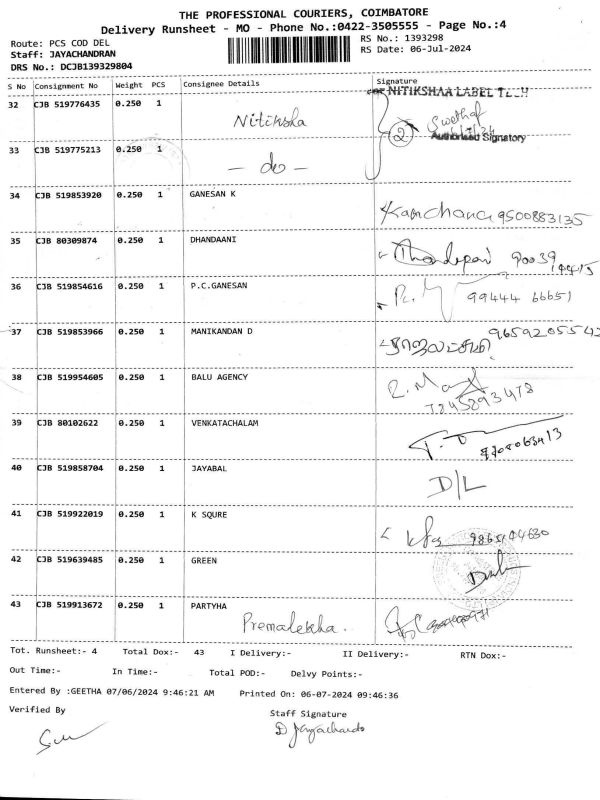 THE PROFESSIONAL COURIERS, COIMBATORE
Delivery Runsheet - MO - Phone No.:0422-3505555 - Page No.:4
Route: PCS COD DEL
RS No.: 1393298
Staff: JAYACHANDRAN
RS Date: 06-Jul-2024
DRS No.: DCJB139329804
S No Consignment No Weight PCS Consignee Details Signature
32 CJB 519776435 0.250 1 Nitiksha
for NITIKSHAA LABEL TECH
2
Authorised Signatory
33 CJB 519775213 0.250 1 - do -
34 CJB 519853920 0.250 1 GANESAN K
Kanchana 9500883135
35 CJB 80309874 0.250 1 DHANDAANI
90039
36 CJB 519854616 0.250 1 P.C.GANESAN
99444 66651
37 CJB 519853966 0.250 1 MANIKANDAN D
38 CJB 519954605 0.250 1 BALU AGENCY
7845893478
39 CJB 80102622 0.250 1 VENKATACHALAM
40 CJB 519858704 0.250 1 JAYABAL
D/L
41 CJB 519922019 0.250 1 K SQURE
42 CJB 519639485 0.250 1 GREEN
43 CJB 519913672 0.250 1 PARTYHA
Premalekha.
Tot. Runsheet:- 4 Total Dox:- 43 I Delivery:- II Delivery:- RTN Dox:-
Out Time:- In Time:- Total POD:- Delvy Points:-
Entered By :GEETHA 07/06/2024 9:46:21 AM Printed On: 06-07-2024 09:46:36
Verified By
Staff Signature